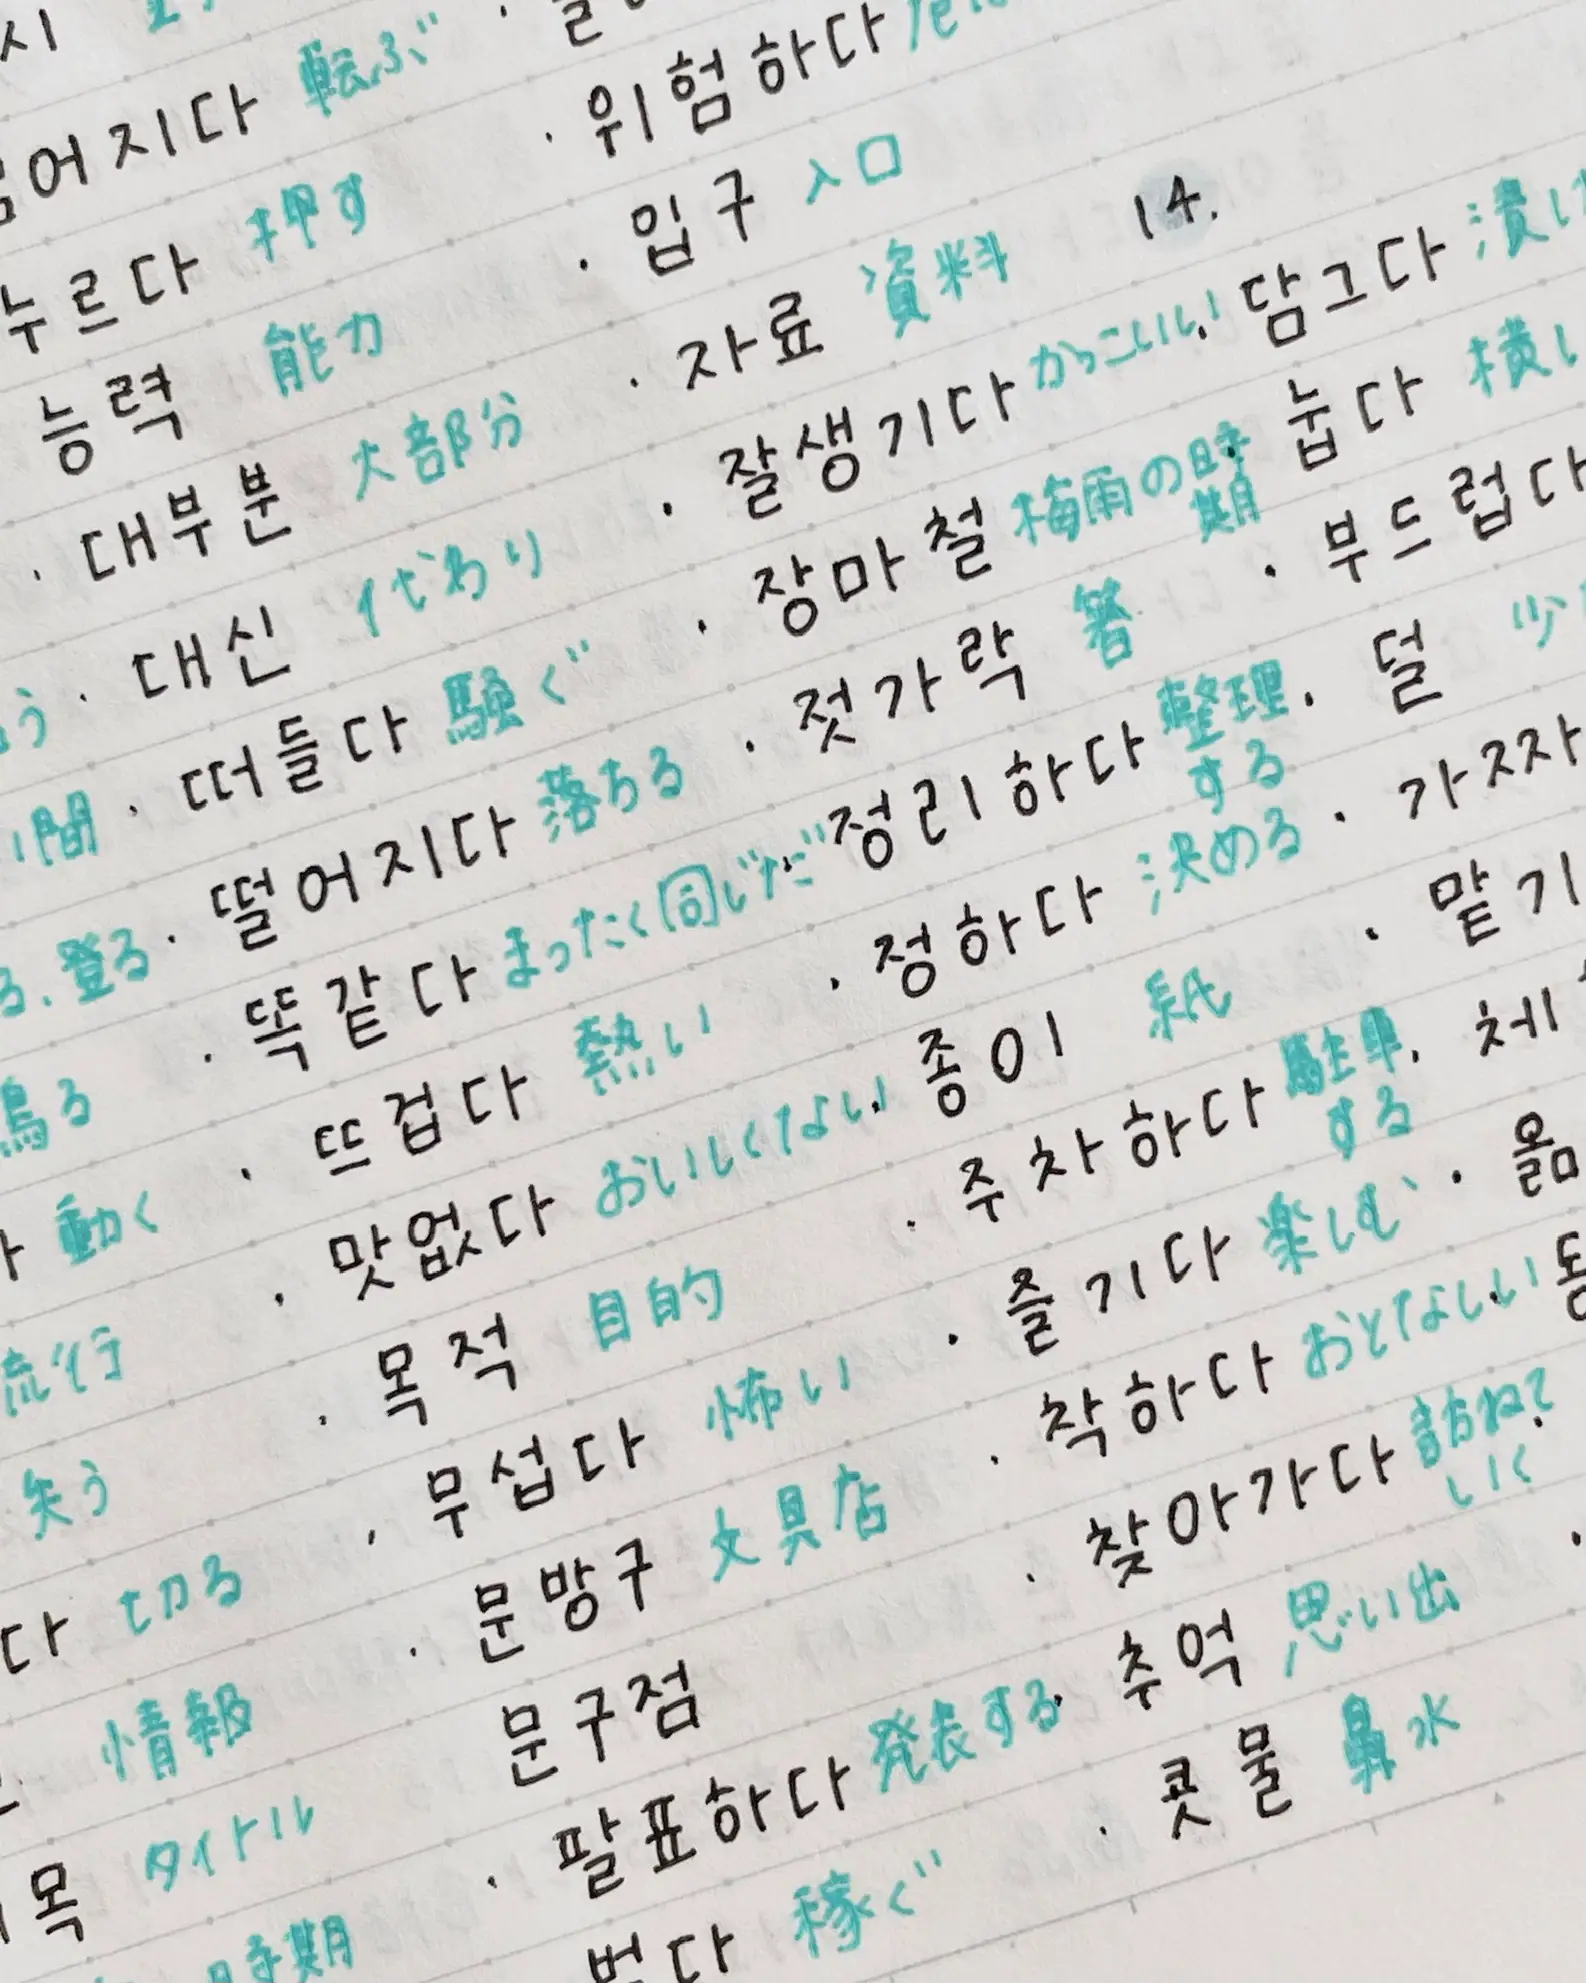 転ぶ
어지다
押す
누르다
能力
능력
· 대부분 大部分
· 대신 代わり
· 떠들다 騒ぐ
· 떨어지다 落ちる
· 똑같다 まったく同じだ
· 뜨겁다 熱い
· 맛없다 おいしくない
· 목적 目的
· 무섭다 怖い
· 문방구 文具店
문구점
· 팔표하다 発表する
稼ぐ
· 위험하다
· 입구 入口
· 자료 資料
· 잘생기다 かっこいい
· 장마철 梅雨の時期
· 젓가락 箸
· 정리하다 整理する
· 정하다 決める
· 종이 紙
· 주차하다 駐車する
· 즐기다 楽しむ
· 착하다 おとなしい
· 찾아가다 訪ねていく
· 추억 思い出
· 콧물 鼻水
14.
· 담그다
· 눕다
· 부드럽다
· 덜
登る
動く
流行
失う
切る
情報
タイトル
時期